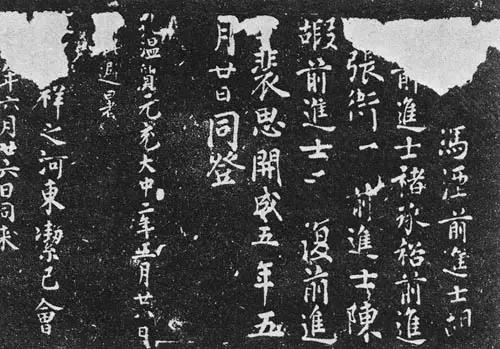 馮涯前進士胡
前進士褚承裕前進
張衛一前進士陳
嘏前進士一復前進
裴思開成五年五
月廿日同登
溫貿元充大中二年五月廿八日
退暑
祥之河東潔己會
年六月廿六日同來